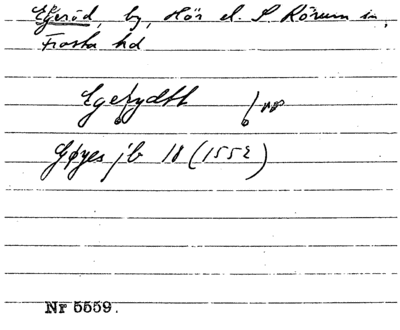 Egeröd, by, Hör el. S. Rörum sn,
Frosta hd
Egerydth
Gøyes jb 18 (1552)
Nr 5559.